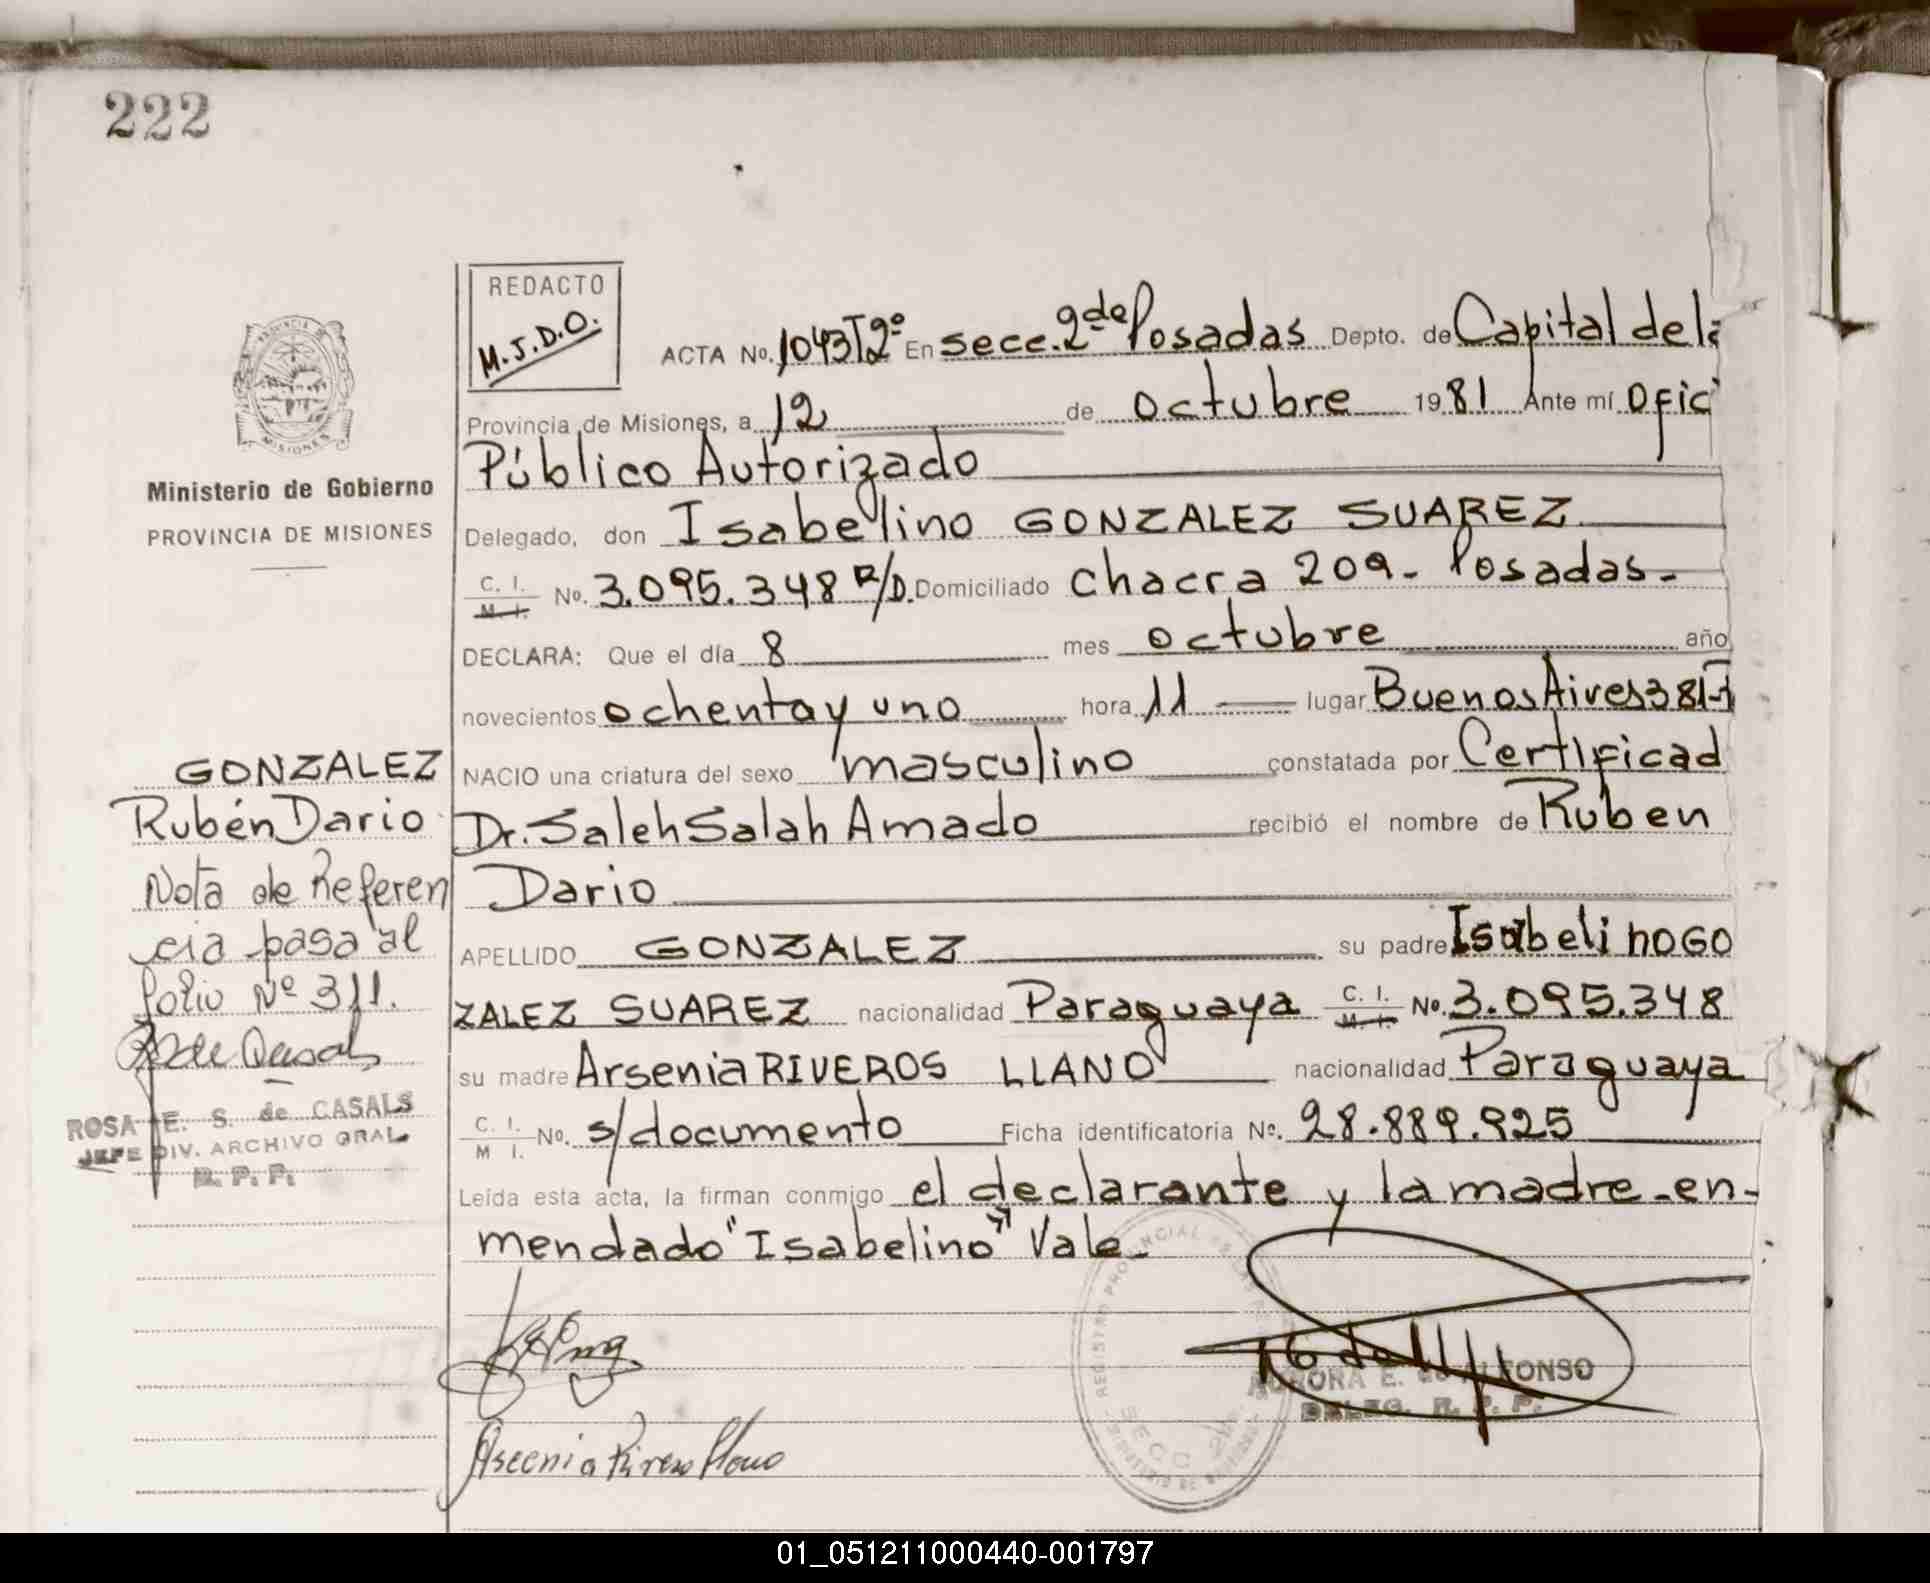 222
REDACTO
M.J.D.O.
ACTA No. 1043T2º En secc. 2da de Posadas Depto. de Capital de la
Provincia de Misiones, a 12 de octubre 1981 Ante mí Ofic
Público Autorizado
Delegado, don Isabelino GONZALEZ SUAREZ
C. I. M. I. No. 3.095.348 R/D. Domiciliado chacra 209 - Posadas -
DECLARA: Que el día 8 mes octubre año
novecientos ochenta y uno hora 11 lugar Buenos Aires 381
NACIO una criatura del sexo masculino constatada por Certificad
Dr. Saleh Salah Amado recibió el nombre de Ruben
Dario
APELLIDO GONZALEZ su padre Isabelino GO
ZALEZ SUAREZ nacionalidad Paraguaya C. I. M. I. No. 3.095.348
su madre Arsenia RIVEROS LLANO nacionalidad Paraguaya
C. I. M I. No. s/documento Ficha identificatoria No. 28.889.925
Leída esta acta, la firman conmigo el declarante y la madre - en-
mendado "Isabelino" Vale -
PROVINCIA DE
MISIONES
Ministerio de Gobierno
PROVINCIA DE MISIONES
GONZALEZ
Rubén Dario
Nota de Referen
cia pasa al
folio Nº 311.
ROSA E. S. de CASALS
JEFE DIV. ARCHIVO GRAL.
R. P. P.
Arcenia Riveros Llano
REGISTRO PROVINCIAL DE LAS
SECC 2da
AURORA E. de ALFONSO
DELEG. R. P. P.
01_051211000440-001797